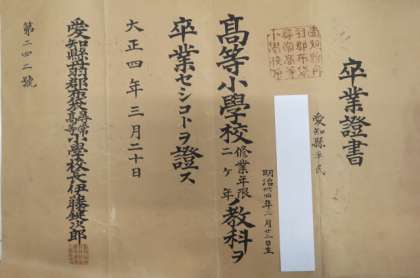 卒業證書
愛知縣平民
明治卅四年二月廿二日生
高等小學校修業年限二ケ年ノ教科ヲ
卒業セシコトヲ證ス
大正四年三月二十日
愛知縣丹羽郡布袋尋常高等小學校長伊藤鍵次郎
第二四二號